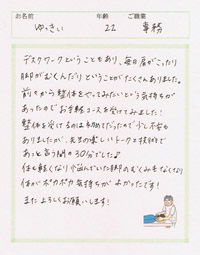 お名前 年齢 ご職業
ゆっきい 22 事務
デスクワークということもあり、毎日肩がこったり
脚がむくんだりということがたくさんありました。
前々から整体をやってみたいという気持ちが
あったのでお手軽コースを受けてみました!
整体を受けるのは初めてだったので少し不安も
ありましたが、先生の楽しいトークと技術で
あっと言う間の30分でした♪
体も軽くなり悩んでいた脚のむくみもなくなり
体がポカポカ気持ちがよかったです!
またよろしくお願いします!